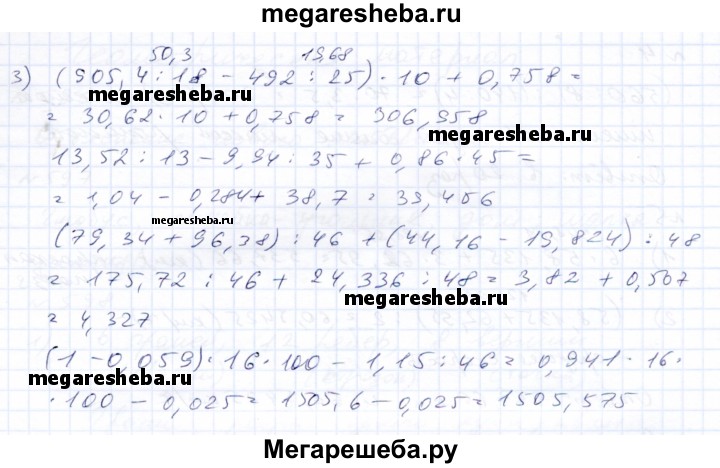 megaresheba.ru
50,3 19,68
3) (905,4 : 18 - 492 : 25) · 10 + 0,758 =
megaresheba.ru
= 30,62 · 10 + 0,758 = 306,958
megaresheba.ru
13,52 : 13 - 9,94 : 35 + 0,86 · 45 =
= 1,04 - 0,284 + 38,7 = 39,456
megaresheba.ru
(79,34 + 96,38) : 46 + (44,16 - 19,824) : 48
= 175,72 : 46 + 24,336 : 48 = 3,82 + 0,507
megaresheba.ru
= 4,327
(1 - 0,059) · 16 · 100 - 1,15 : 46 = 0,941 · 16 ·
megaresheba.ru
· 100 - 0,025 = 1505,6 - 0,025 = 1505,575
Мегарешеба.ру